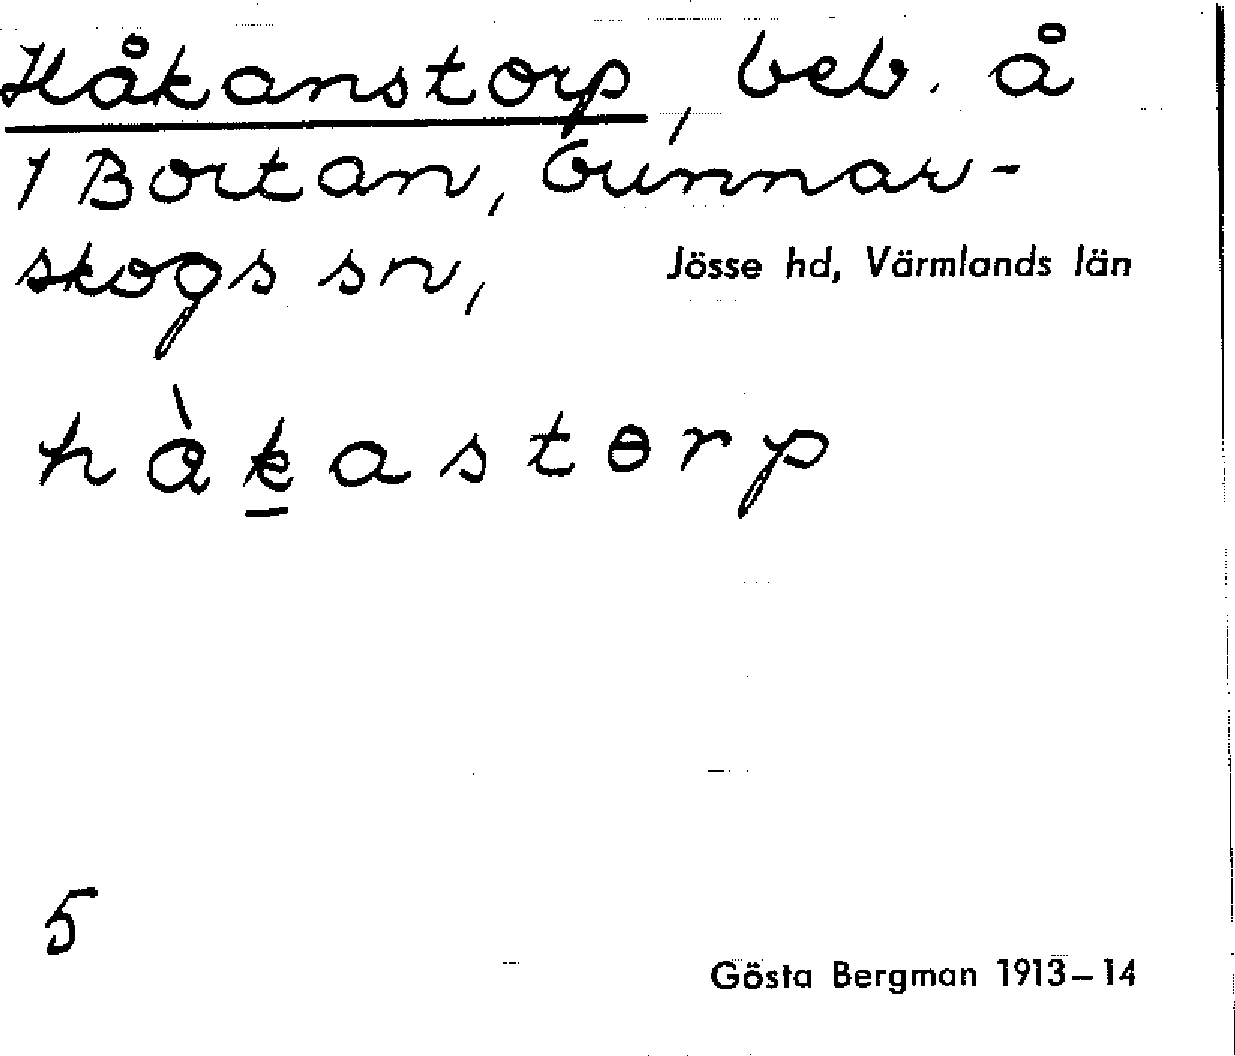 Håkanstorp, beb. å
1 Bortan, Gunnar-
skogs sn, Jösse hd, Värmlands län
hàk̲astɵrp
5
Gösta Bergman 1913–14